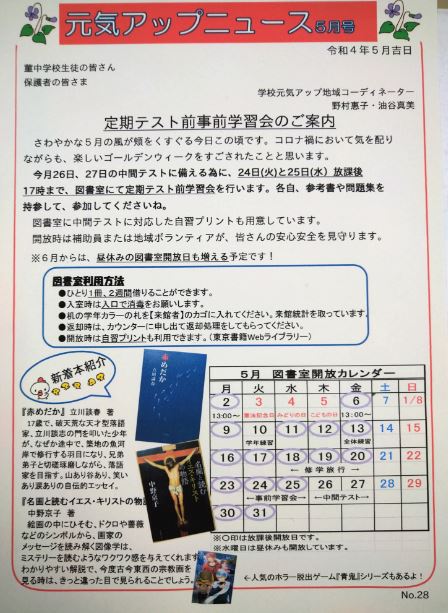 元気アップニュース5月号
令和４年５月吉日
菫中学校生徒の皆さん
保護者の皆さま
学校元気アップ地域コーディネーター
野村惠子・油谷真美
定期テスト前事前学習会のご案内
さわやかな５月の風が頬をくすぐる今日この頃です。コロナ禍において気を配り
ながらも、楽しいゴールデンウィークをすごされたことと思います。
今月26日、27日の中間テストに備える為に、24日(火)と25日(水）放課後
17時まで、図書室にて定期テスト前学習会を行います。各自、参考書や問題集を
持参して、参加してくださいね。
図書室に中間テストに対応した自習プリントも用意しています。
開放時は補助員または地域ボランティアが、皆さんの安心安全を見守ります。
※６月からは、昼休みの図書室開放日も増える予定です！
図書室利用方法
●ひとり１冊、２週間借りることができます。
●入室時は入口で消毒をお願いします。
●机の学年カラーの札を【来館者】のカゴに入れてください。来館統計を取っています。
●返却時は、カウンターに申し出て返却処理をしてもらってください。
●開放時は自習プリントも利用できます。（東京書籍Webライブラリー）
新着本紹介
『赤めだか』 立川談春 著
17歳で、破天荒な天才型落語
家、立川談志の門を叩いた少年
が、なぜか途中で、築地の魚河
岸で修行する羽目になり、兄弟
弟子と切磋琢磨しながら、落語
家を目指す。山あり谷あり、笑い
あり涙ありの自伝的エッセイ。
赤めだか
立川談春
『名画と読むイエス・キリストの物語』
中野京子 著
絵画の中にひそむ、ドクロや薔薇
などのシンボルから、画家の
メッセージを読み解く図像学は、
ミステリーを読むようなワクワク感を与えてくれます。
わかりやすい解説で、今度古今東西の宗教画を
見る時は、きっと違った目で見られることでしょう。
名画と読むイエス・キリストの物語
中野京子
５月 図書室開放カレンダー
月 火 水 木 金 土 日
2 3 4 5 6 7 1/8
13:00～ 憲法記念日 みどりの日 こどもの日 13:00～
9 10 11 12 13 14 15
学年練習 全体練習
16 17 18 19 20 21 22
← 修学旅行 →
23 24 25 26 27 28 29
←事前学習会→ ←中間テスト→
30 31
※〇印は放課後開放日です。
※水曜日は昼休みも開放しています。
←人気のホラー脱出ゲーム『青鬼』シリーズもあるよ！
No.28